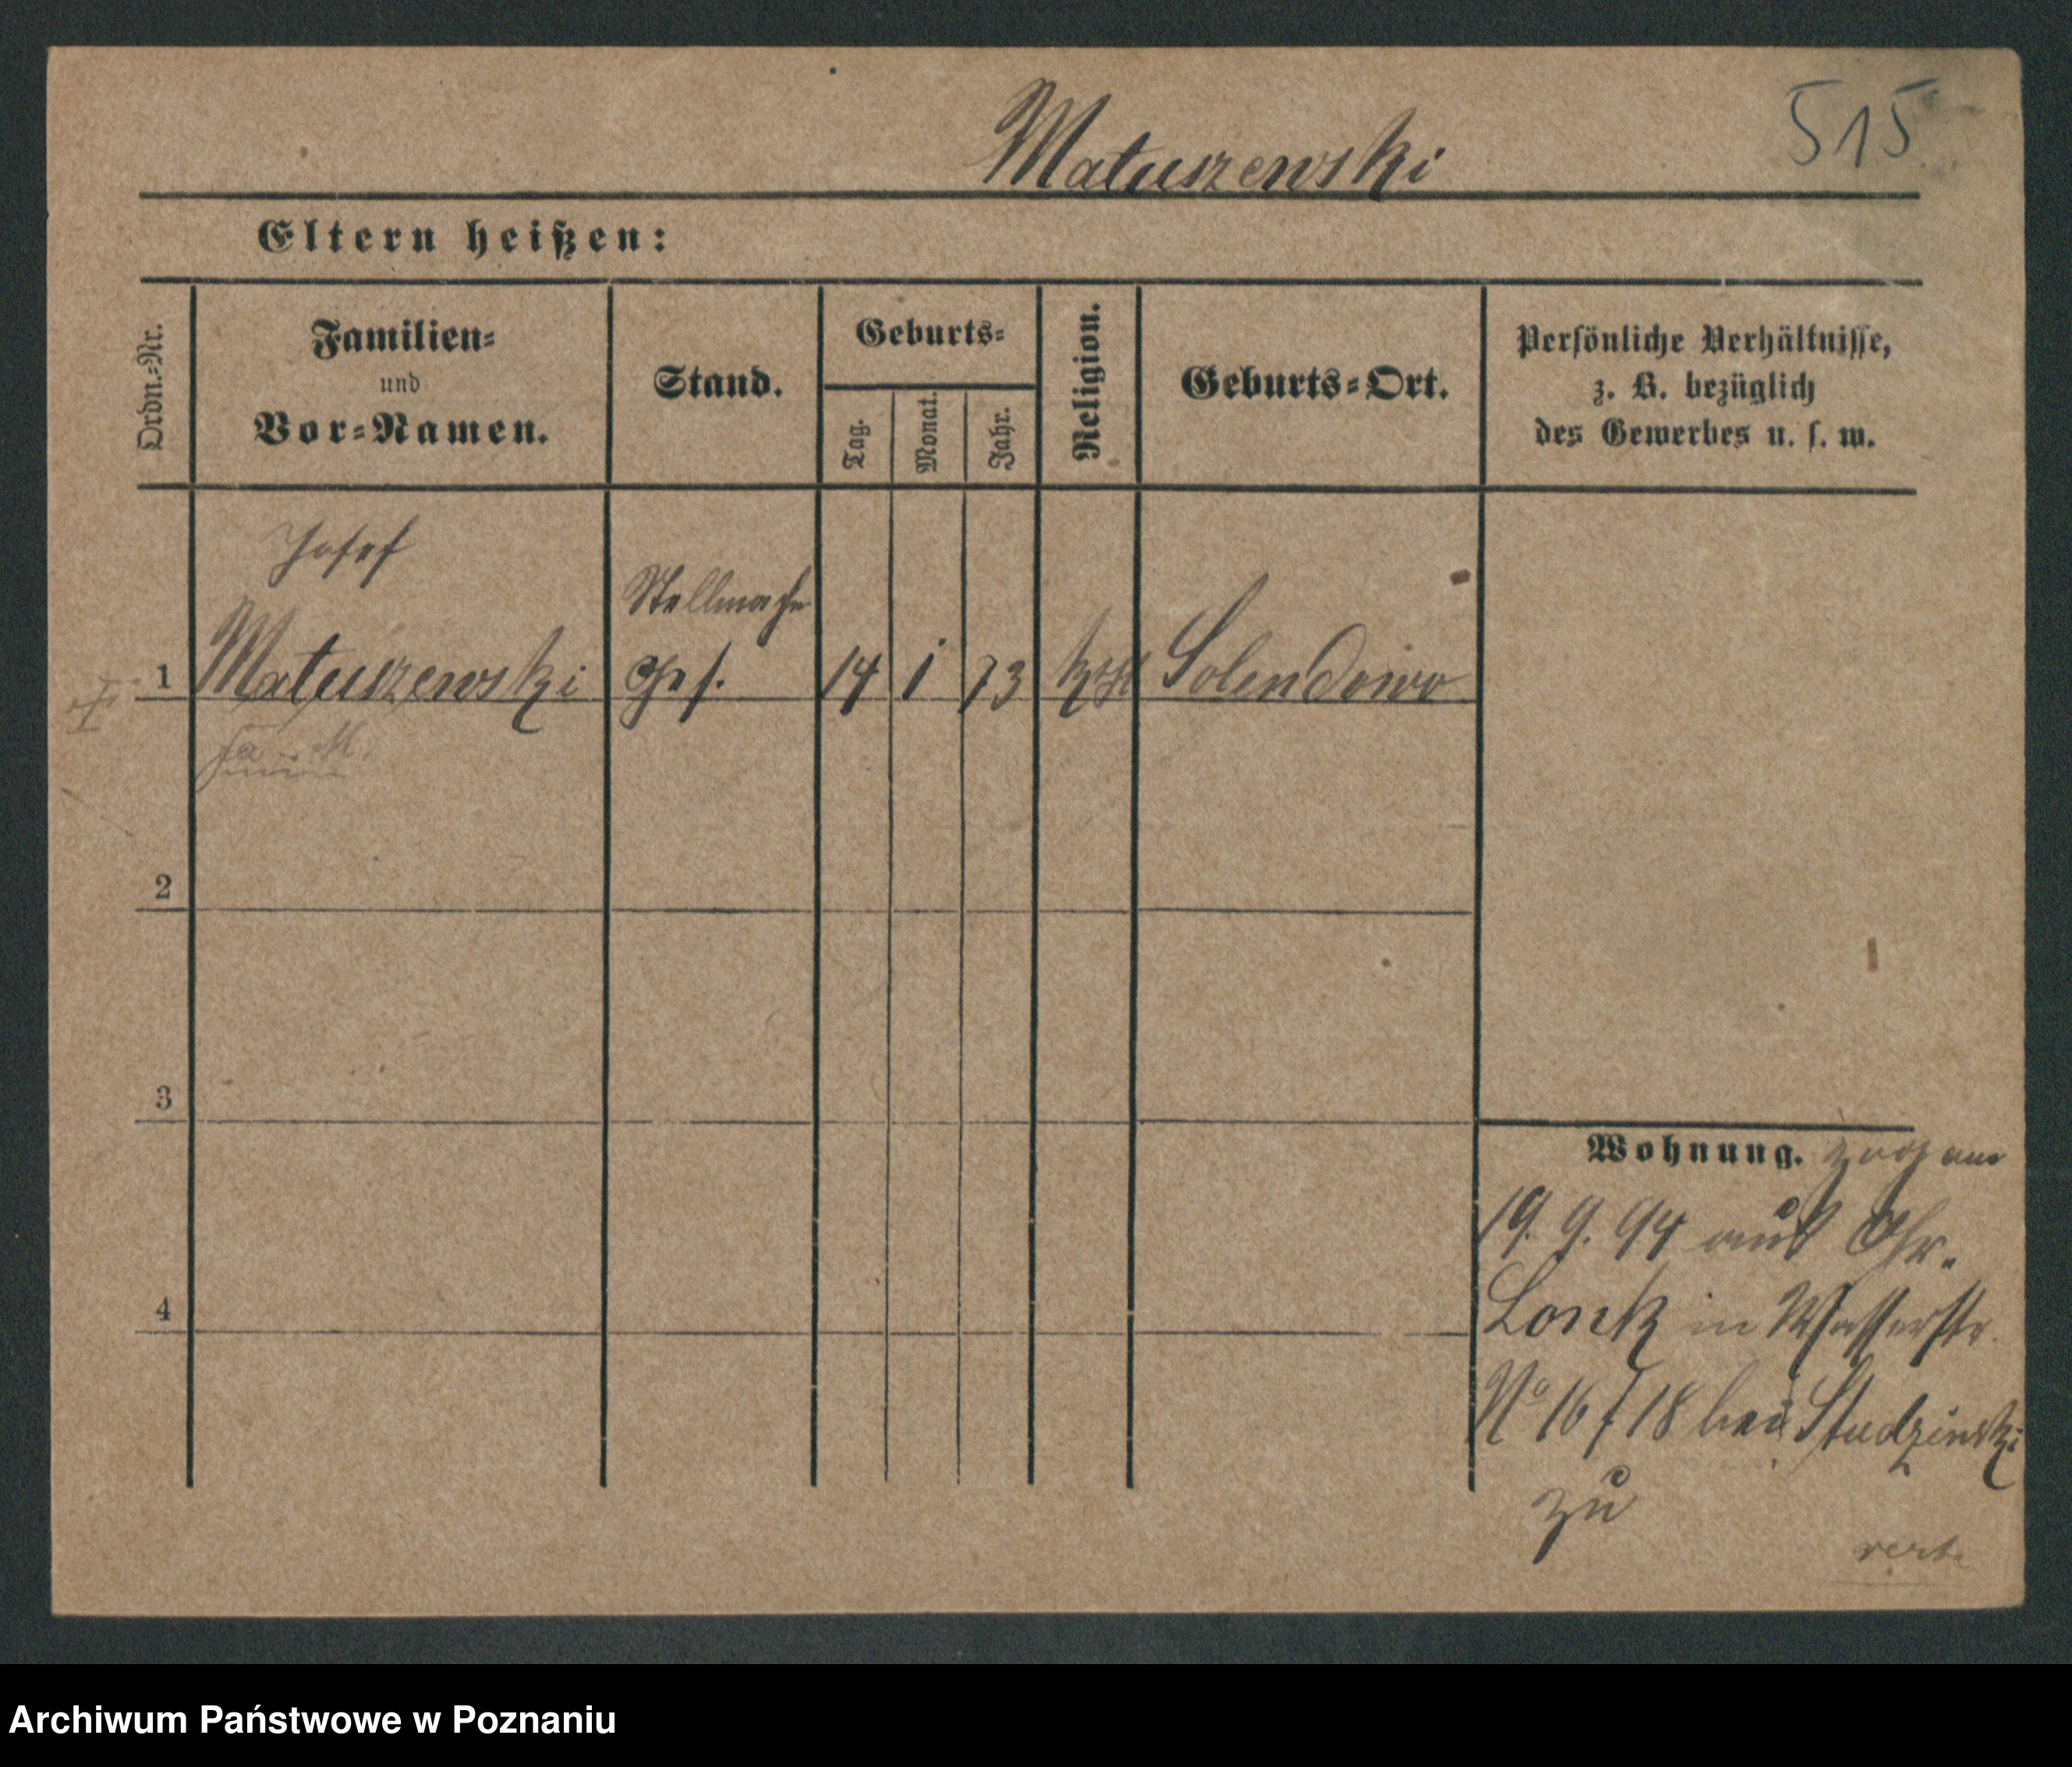 515
Matuszewski
Eltern heißen:
Ordn.=Nr.
Familien=
und
Vor=Namen.
Stand.
Geburts=
Tag.
Monat.
Jahr.
Religion.
Geburts=Ort.
Persönliche Verhältnisse,
z. B. bezüglich
des Gewerbes u. s. w.
Josef
Stellmache
1 Matuszewski Ges. 14 1 73 kath Solendowo
2
3
4
Wohnung. zog am
19. 9. 94 aus Chr.
Lonk in Wasserstr.
No 16/18 bei Studzinski
zu
Archiwum Państwowe w Poznaniu